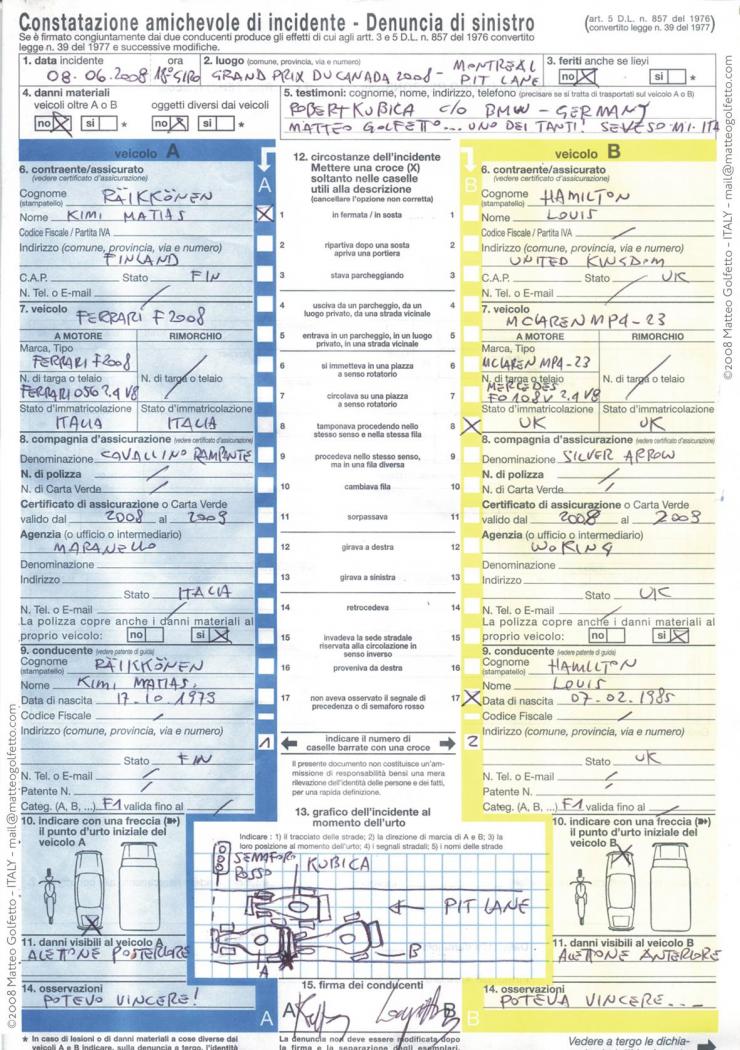 Constatazione amichevole di incidente - Denuncia di sinistro
(art. 5 D.L. n. 857 del 1976)
(convertito legge n. 39 del 1977)
Se è firmato congiuntamente dai due conducenti produce gli effetti di cui agli artt. 3 e 5 D.L. n. 857 del 1976 convertito
legge n. 39 del 1977 e successive modifiche.
1. data incidente ora 2. luogo (comune, provincia, via e numero) 3. feriti anche se lievi
08.06.2008 18°GIRO GRAND PRIX DU CANADA 2008 - MONTREAL PIT LANE no si *
4. danni materiali
veicoli oltre A o B oggetti diversi dai veicoli
no si * no si *
5. testimoni: cognome, nome, indirizzo, telefono (precisare se si tratta di trasportati sul veicolo A o B)
ROBERT KUBICA c/o BMW - GERMANY
MATTEO GOLFETTO... UNO DEI TANTI! SEVESO-MI-ITA
veicolo A
6. contraente/assicurato
(vedere certificato d'assicurazione)
Cognome RÄIKKÖNEN
(stampatello)
Nome KIMI MATIAS
Codice Fiscale / Partita IVA
Indirizzo (comune, provincia, via e numero)
FINLAND
C.A.P. Stato FIN
N. Tel. o E-mail
7. veicolo FERRARI F2008
A MOTORE RIMORCHIO
Marca, Tipo
FERRARI F2008
N. di targa o telaio N. di targa o telaio
FERRARI 056 2.4 V8
Stato d'immatricolazione Stato d'immatricolazione
ITALIA ITALIA
8. compagnia d'assicurazione (vedere certificato d'assicurazione)
Denominazione CAVALLINO RAMPANTE
N. di polizza
N. di Carta Verde
Certificato di assicurazione o Carta Verde
valido dal 2008 al 2009
Agenzia (o ufficio o intermediario)
MARANELLO
Denominazione
Indirizzo
Stato ITALIA
N. Tel. o E-mail
La polizza copre anche i danni materiali al
proprio veicolo: no si
9. conducente (vedere patente di guida)
Cognome RÄIKKÖNEN
(stampatello)
Nome KIMI MATIAS
Data di nascita 17.10.1979
Codice Fiscale
Indirizzo (comune, provincia, via e numero)
Stato FIN
N. Tel. o E-mail
Patente N.
Categ. (A, B, ...) F1 valida fino al
10. indicare con una freccia
il punto d'urto iniziale del
veicolo A
11. danni visibili al veicolo A
ALETTONE POSTERIORE
14. osservazioni
POTEVO VINCERE!
A
12. circostanze dell'incidente
Mettere una croce (X)
soltanto nelle caselle
utili alla descrizione
(cancellare l'opzione non corretta)
A B
1 in fermata / in sosta 1
2 ripartiva dopo una sosta 2
apriva una portiera
3 stava parcheggiando 3
4 usciva da un parcheggio, da un 4
luogo privato, da una strada vicinale
5 entrava in un parcheggio, in un luogo 5
privato, in una strada vicinale
6 si immetteva in una piazza 6
a senso rotatorio
7 circolava su una piazza 7
a senso rotatorio
8 tamponava procedendo nello 8
stesso senso e nella stessa fila
9 procedeva nello stesso senso, 9
ma in una fila diversa
10 cambiava fila 10
11 sorpassava 11
12 girava a destra 12
13 girava a sinistra 13
14 retrocedeva 14
15 invadeva la sede stradale 15
riservata alla circolazione in
senso inverso
16 proveniva da destra 16
17 non aveva osservato il segnale di 17
precedenza o di semaforo rosso
1 indicare il numero di 2
caselle barrate con una croce
Il presente documento non costituisce un'am-
missione di responsabilità bensì una mera
rilevazione dell'identità delle persone e dei fatti,
per una rapida definizione.
13. grafico dell'incidente al
momento dell'urto
Indicare : 1) il tracciato delle strade; 2) la direzione di marcia di A e B; 3) la
loro posizione al momento dell'urto; 4) i segnali stradali; 5) i nomi delle strade
SEMAFORO
ROSSO
KUBICA
PIT LANE
A
B
15. firma dei conducenti
A B
veicolo B
6. contraente/assicurato
(vedere certificato d'assicurazione)
Cognome HAMILTON
(stampatello)
Nome LOUIS
Codice Fiscale / Partita IVA
Indirizzo (comune, provincia, via e numero)
UNITED KINGDOM
C.A.P. Stato UK
N. Tel. o E-mail
7. veicolo
MCLAREN MP4-23
A MOTORE RIMORCHIO
Marca, Tipo
MCLAREN MP4-23
N. di targa o telaio N. di targa o telaio
MERCEDES
FO 108V 2.4 V8
Stato d'immatricolazione Stato d'immatricolazione
UK UK
8. compagnia d'assicurazione (vedere certificato d'assicurazione)
Denominazione SILVER ARROW
N. di polizza
N. di Carta Verde
Certificato di assicurazione o Carta Verde
valido dal 2008 al 2009
Agenzia (o ufficio o intermediario)
WOKING
Denominazione
Indirizzo
Stato UK
N. Tel. o E-mail
La polizza copre anche i danni materiali al
proprio veicolo: no si
9. conducente (vedere patente di guida)
Cognome HAMILTON
(stampatello)
Nome LOUIS
Data di nascita 07.02.1985
Codice Fiscale
Indirizzo (comune, provincia, via e numero)
Stato UK
N. Tel. o E-mail
Patente N.
Categ. (A, B, ...) F1 valida fino al
10. indicare con una freccia
il punto d'urto iniziale del
veicolo B
11. danni visibili al veicolo B
ALETTONE ANTERIORE
14. osservazioni
POTEVA VINCERE...
B
* In caso di lesioni o di danni materiali a cose diverse dai
veicoli A e B indicare, sulla denuncia a tergo, l'identità
La denuncia non deve essere modificata dopo
la firma e la separazione degli esemplari.
Vedere a tergo le dichia-
©2008 Matteo Golfetto - ITALY - mail@matteogolfetto.com
©2008 Matteo Golfetto - ITALY - mail@matteogolfetto.com